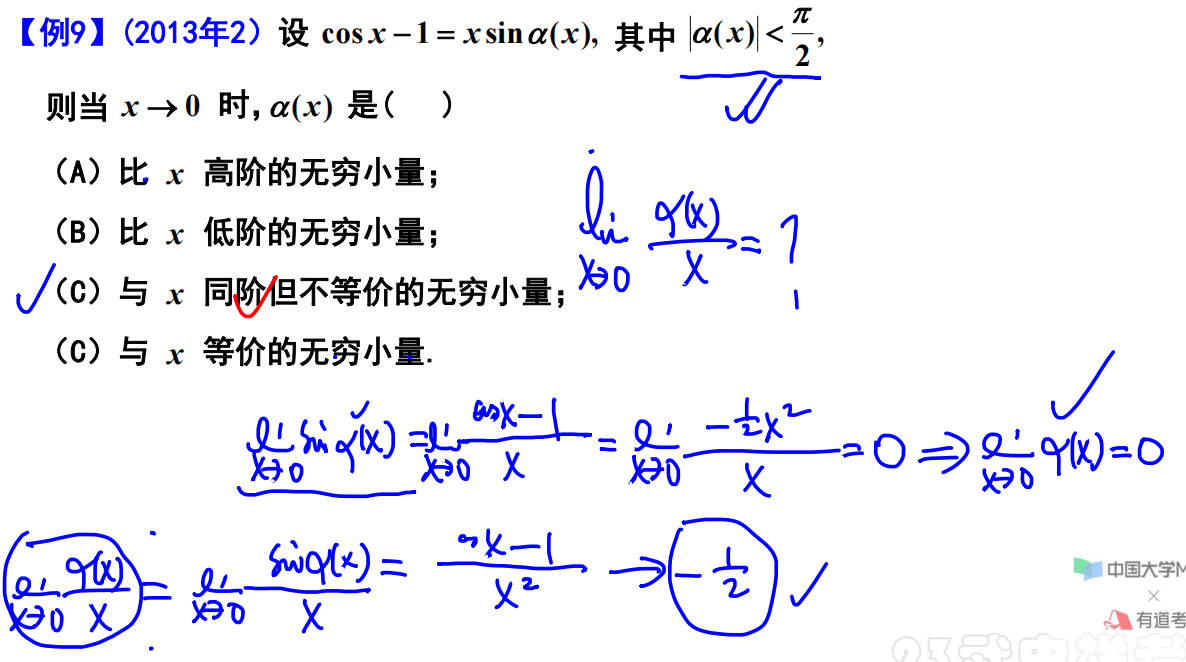 【例9】(2013年2) 设 cos x − 1 = x sin α(x), 其中 |α(x)| < π/2,
则当 x → 0 时, α(x) 是( )
(A) 比 x 高阶的无穷小量;
(B) 比 x 低阶的无穷小量;
(C) 与 x 同阶但不等价的无穷小量;
(C) 与 x 等价的无穷小量.
lim x→0 α(x)/x = ?
lim x→0 sin α(x) = lim x→0 (cos x − 1)/x = lim x→0 (−1/2 x²)/x = 0 ⇒ lim x→0 α(x) = 0
lim x→0 α(x)/x = lim x→0 sin α(x)/x = (cos x − 1)/x² → −1/2
中国大学M
×
有道考